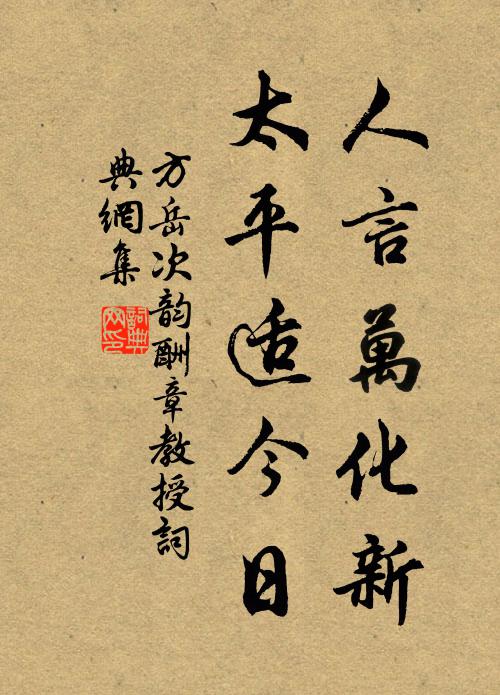 人言萬化新
太平适今日
方岳次韵酬章教授詞
典網集
詞典
网印